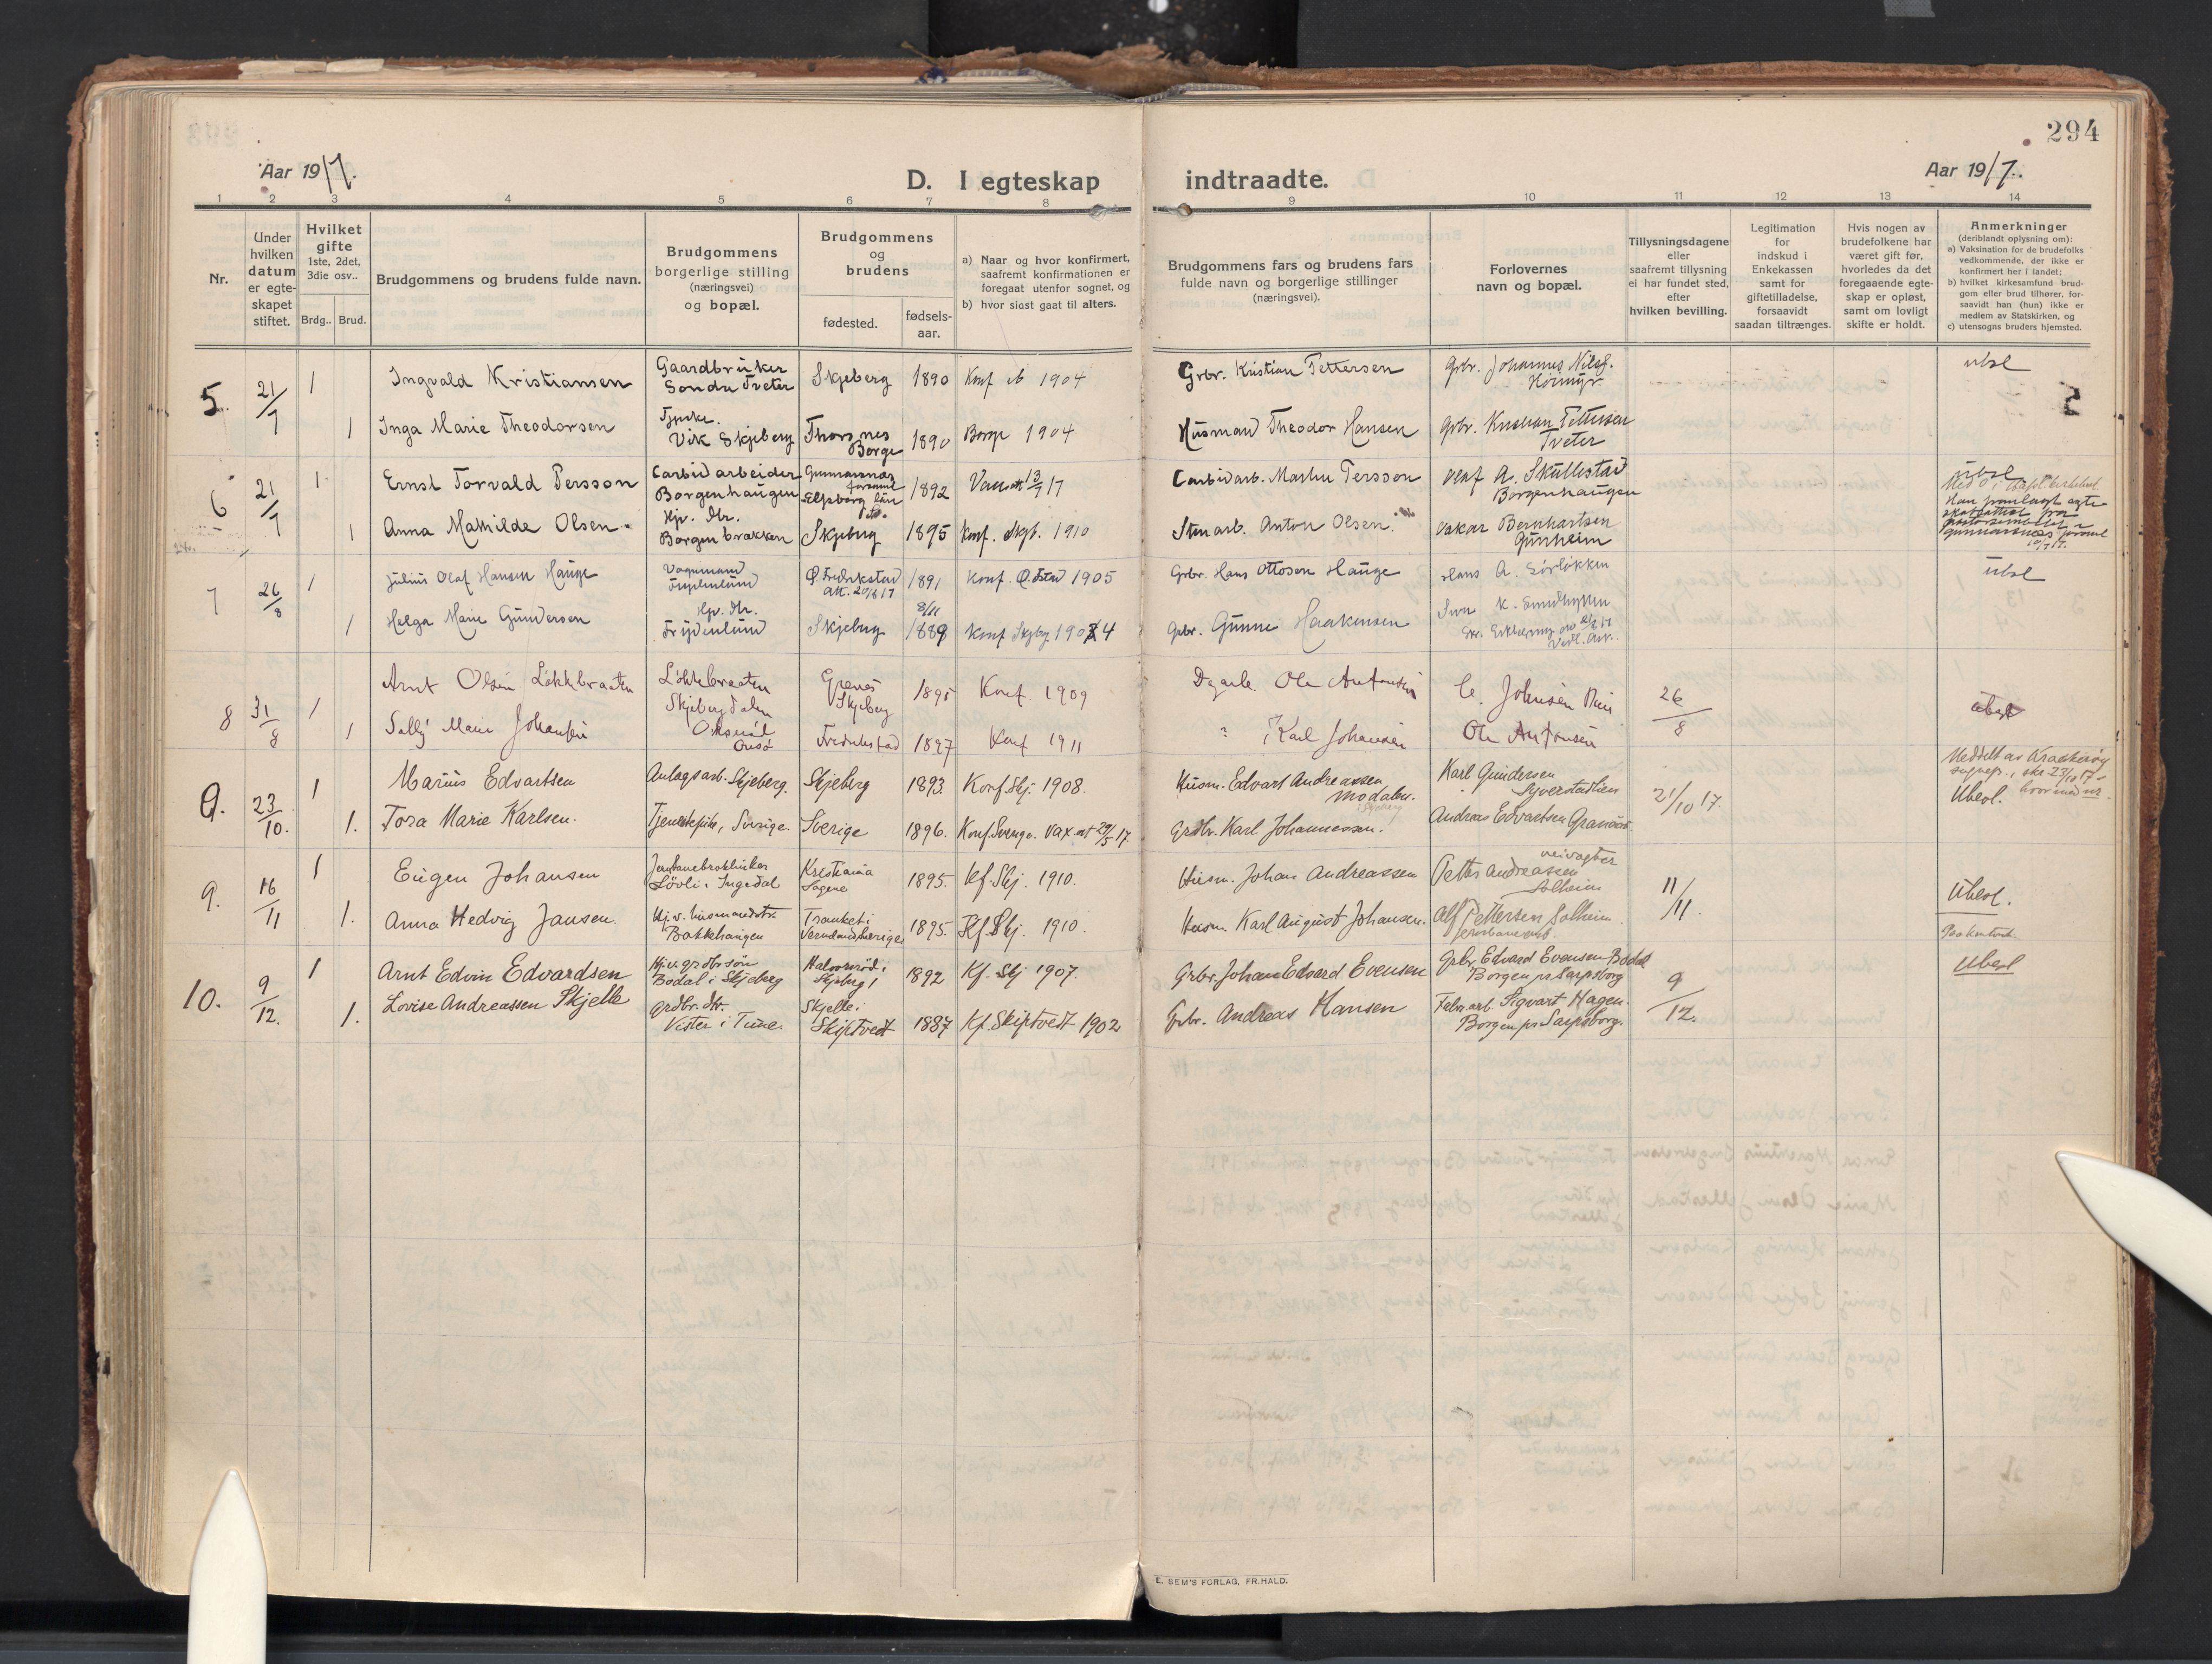 294
Aar 1917.
D. I egteskap indtraadte.
Aar 1917.
1 2 3 4 5 6 7 8 9 10 11 12 13 14
Nr.
Under hvilken datum er egte-skapet stiftet.
Hvilket gifte 1ste, 2det, 3die osv..
Brdg.. Brud.
Brudgommens og brudens fulde navn.
Brudgommens borgerlige stilling (næringsvei) og bopæl.
Brudgommens og brudens
fødested.
fødsels-aar.
a) Naar og hvor konfirmert, saafremt konfirmationen er foregaat utenfor sognet, og
b) hvor sidst gaat til alters.
Brudgommens fars og brudens fars fulde navn og borgerlige stillinger (næringsvei).
Forlovernes navn og bopæl.
Tillysningsdagene eller saafremt tillysning ei har fundet sted, efter hvilken bevilling.
Legitimation for indskud i Enkekassen samt for giftetilladelse, forsaavidt saadan tiltrænges.
Hvis nogen av brudefolkene har været gift før, hvorledes da det foregaaende egte-skap er opløst, samt om lovligt skifte er holdt.
Anmerkninger (deriblandt oplysning om):
a) Vaksination for de brudefolks vedkommende, der ikke er konfirmert her i landet;
b) hvilket kirkesamfund brud-gom eller brud tilhører, for-saavidt han (hun) ikke er medlem av Statskirken, og
c) utensogns bruders hjemsted.
5. 21/7 1 Ingvald Kristiansen Gaardbruker Søndre Tveter Skjeberg 1890 Konf 1904 Grbr. Kristian Pettersen Grbr. Johannes Nilsf.
1 Inga Marie Theodorsen Vik Skjeberg Thorsnes Borge 1890 Borge 1904 Husmand Theodor Hansen Grbr. Kristian Pettersen Tveter 5
6 21/7 1 Ernst Torvald Persson Carbidarbeider Borgenhaugen Gunnarsnæs Elfsborg län 1892 Vaks. att 13/7 17 Carbidarb. Martin Persson A. Skullestad Borgenhaugen
1 Anna Mathilde Olsen. Hjv. dtr. Borgenbrækken Skjeberg 1895 Konf. Skjb. 1910 Stenarb. Anton Olsen. Oskar Bernhartsen Gunheim
7 26/8 1 Julius Olaf Hansen Hauge Frydenlund Ø. Fredrikstad att. 20/8 17 1891 Konf. Ø. Fstad 1905 Grbr. Hans Ottosen Hauge Hans A. Sørløkken
1 Helga Marie Gundersen Hjv. dtr. Frydenlund Skjeberg 1889 Konf Skjbg. 1904 Grbr. Gunne Haakensen
8 31/8 1 Arnt Olsen Løkkbraaten Løkkebraaten Skjebergdalen Grenes Skjeberg 1895 Konf. 1909 Ole Antonsen C. Johnsen 26/8
1 Sally Marie Johansen Onsø Fredrikstad 1897 Konf 1911 Karl Johansen Ole Antonsen
9. 23/10. 1 Marius Edvartsen Anlagsarb. Skjeberg. Skjeberg 1893. Konf. Skj. 1908. Husm. Edvart Andreassen Modalen. Karl Gundersen 21/10 17. Ubesl.
1. Tora Marie Karlsen. Tjenestepike, Sverige. Sverige 1896. Konf. Sverige. Vax. att 29/5 17. Grdbr. Karl Johannessen. Andreas Edvartsen
9. 16/11 1 Eugen Johansen Løvli i Ingedal Kristiania Sagene 1895. Kf. Skj. 1910. Husm. Johan Andreassen Petter Andreassen veivogter Solheim 11/11. Ubesl.
1. Anna Hedvig Jansen. Hj.v. husmandsdtr. Bakkehaugen Tranket i Vermland Sverige 1895. Kf. Skj. 1910. Husm. Karl August Johansen. Alf Pettersen Solheim
10. 9/12. 1 Arnt Edvin Edvardsen Hj.v. grdbr.søn Bodal i Skjeberg Halvorsrød i Skjeberg 1892 Kf. Skj 1907. Grbr. Johan Edvard Evensen Grbr. Edvard Evensen Bodal Borgen pr Sarpsborg 9/12. Ubesl
1. Lovise Andreassen Skjelle grdbr. dtr. Vister i Tune. Skjelle i Skiptvedt 1887 Kf. Skiptvedt 1902 Grbr. Andreas Hansen Fabr.arb. Sigvart Hagen. Borgen pr Sarpsborg.
E. SEM'S FORLAG, FR.HALD.